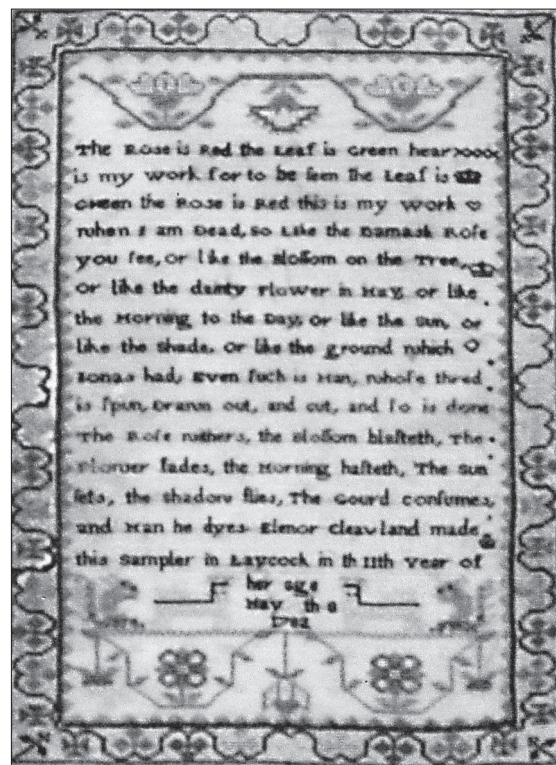 The Rose is Red the Leaf is Green hear
is my work for to be ſeen the Leaf is
Green the Rose is Red this is my work
when I am Dead, so Like the Damask Roſe
you ſee, or like the Bloſſom on the Tree,
Or like the dainty Flower in May, or like
the Morning to the Day, Or like the Sun, or
like the shade, Or like the ground which
Jonas had, Even ſuch is Man, whoſe thred
is ſpun, Drawn out, and cut, and ſo is done
The Roſe withers, the Bloſſom blaſteth, The
Flower fades, the Morning haſteth, The Sun
ſets, the shadow flies, The Gourd conſumes,
and Man he dyes Elenor cleavland made
this Sampler in Laycock in th 11th year of
her age
May th